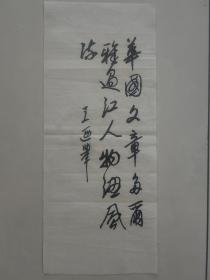 華國文章多爾
雅過江人物總風
流
王